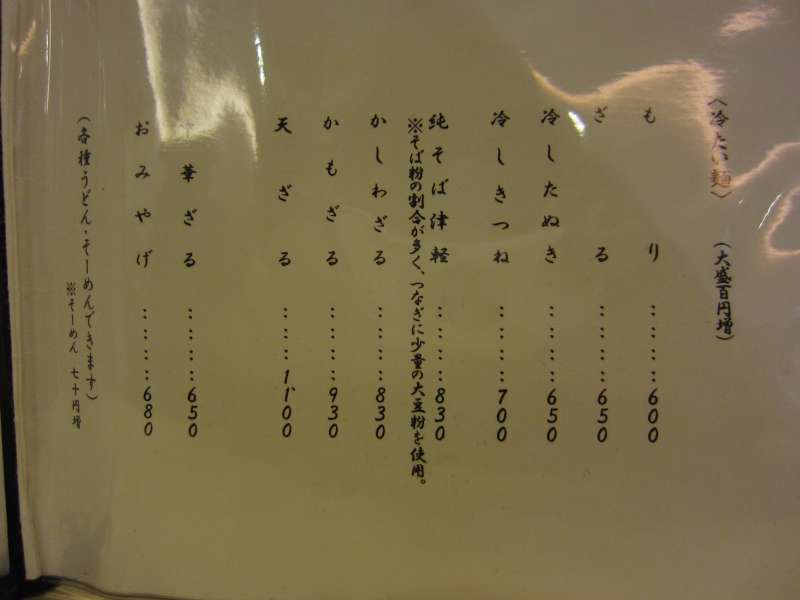 〈冷たい麺〉 （大盛百円増）
もり ……600
ざる ……650
冷したぬき ……650
冷しきつね ……700
純そば津軽 ……830
※そば粉の割合が多く、つなぎに少量の大豆粉を使用。
かしわざる ……830
かもざる ……930
天ざる ……1,100
中華ざる ……650
おみやげ ……680
（各種うどん・そーめんできます）
※そーめん 七十円増